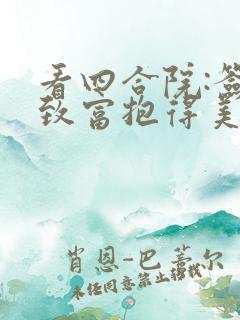 看四合院:签
致富抱得美
肖恩-巴蒂尔
未经同意禁止转载